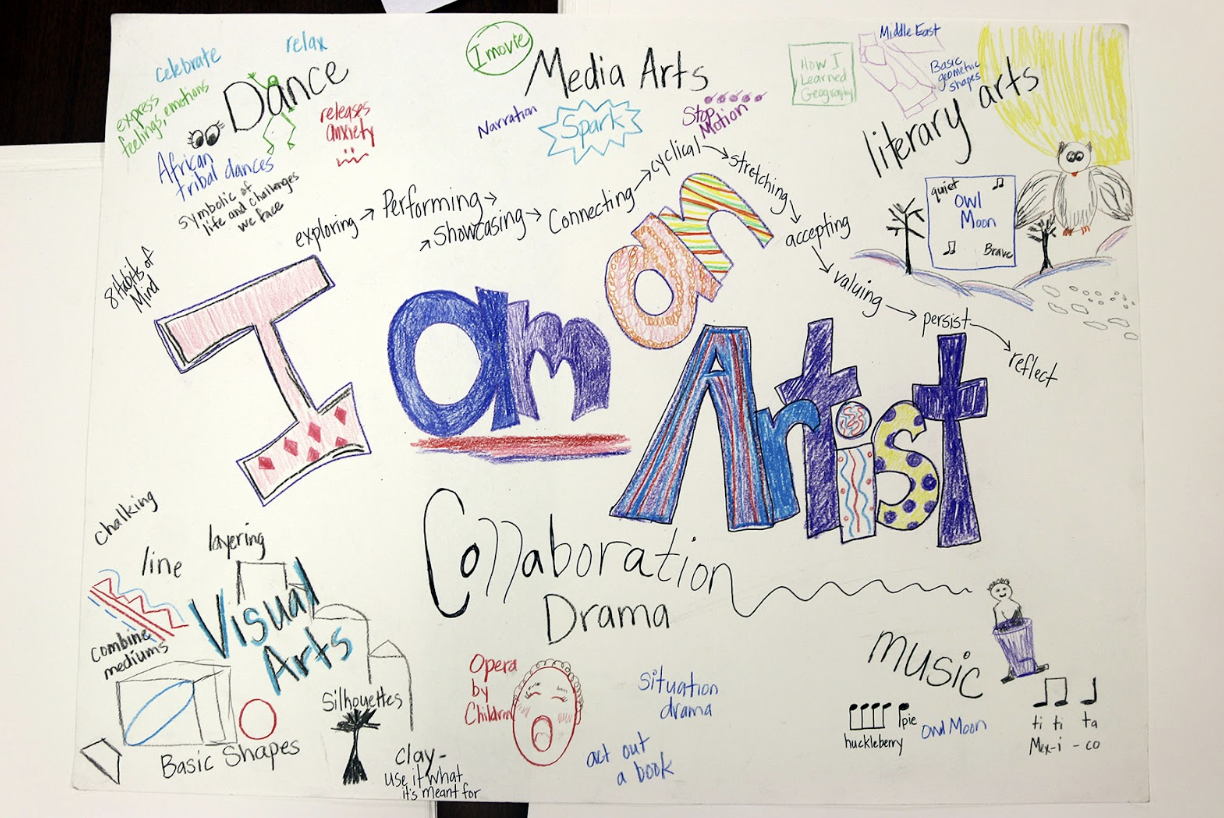 celebrate
relax
Dance
express
feelings, emotions
releases
anxiety
African
tribal dances
symbolic of
life and challenges
we face
8 Habits of
Mind
I movie
Media Arts
Narration
Spark
Stop
Motion
How I
Learned
Geography
Middle East
Basic
geometric
shapes
literary arts
quiet
Owl
Moon
Brave
exploring → Performing →
→ Showcasing → Connecting → cyclical → stretching → accepting → valuing → persist → reflect
I am an
Artist
Collaboration
chalking
line
layering
Visual
Arts
combine
mediums
Basic Shapes
Silhouettes
clay-
use it what
it's meant for
Drama
Opera
by
Children
situation
drama
act out
a book
music
pie
huckleberry
Owl Moon
ti ti ta
Mex-i-co